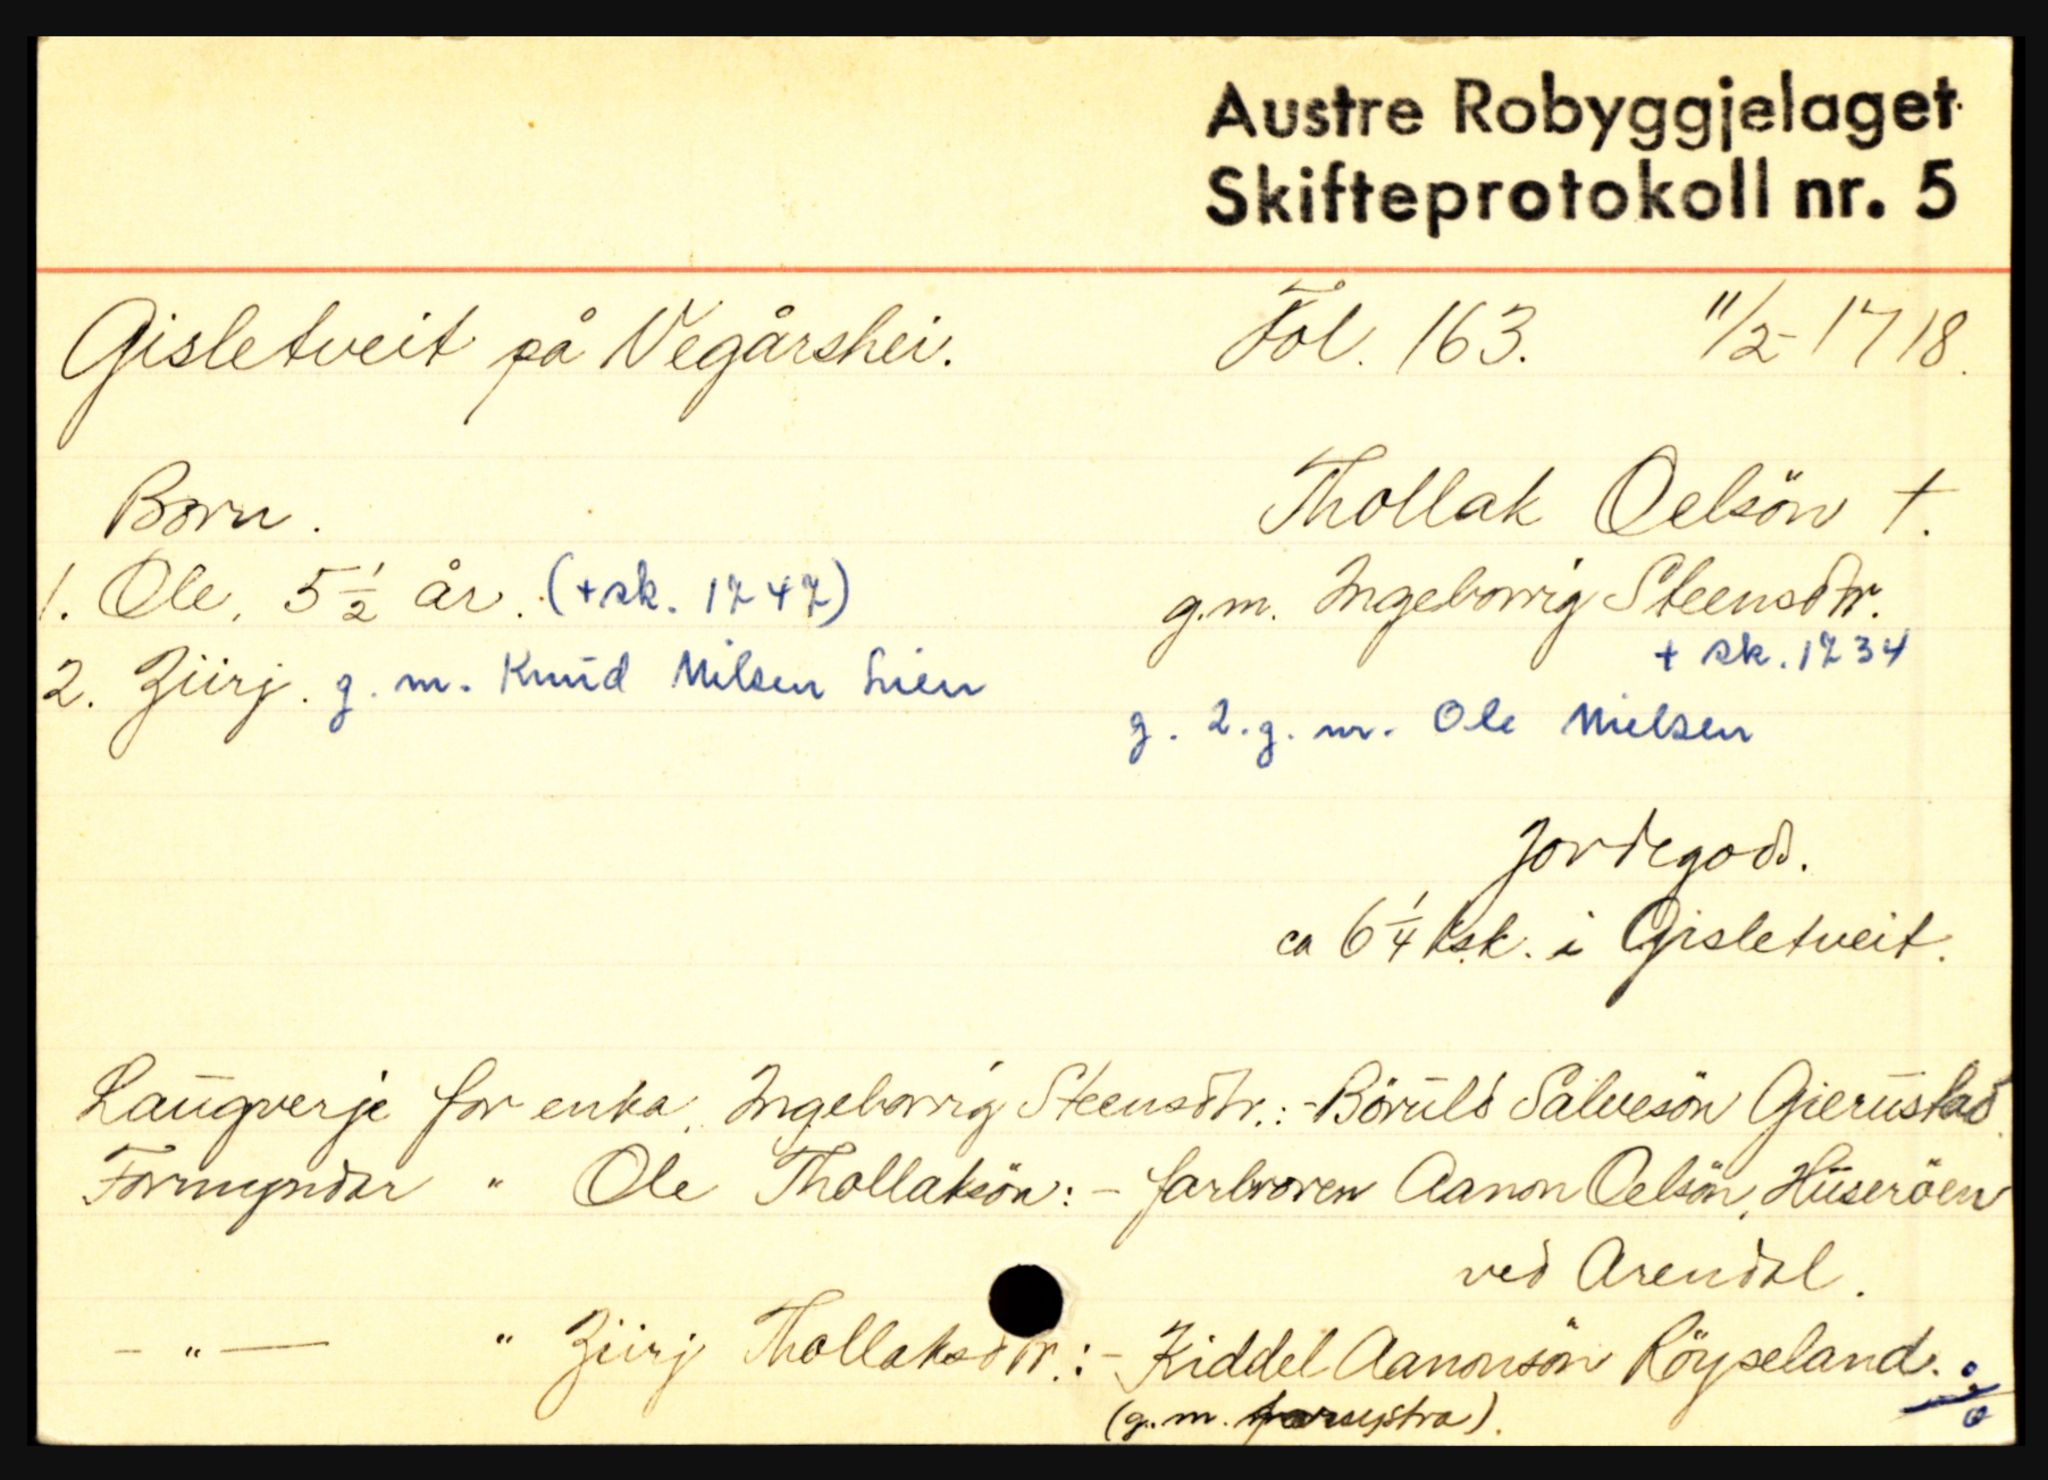 Austre Robyggjelaget
Skifteprotokoll nr. 5
Gisletveit på Vegårshei. Fol. 163. 11/2-1718.
Born. Thollak Oelsön †.
1. Ole, 5 1/2 år. (+ sk. 1747) g.m. Ingeborrig Steensdtr.
+ sk. 1734
2. Ziirj. g. m. Knud Nilsen Lien
g. 2. g. m. Ole Nielsen
Jordegods.
ca 6 1/4 ksk. i Gisletveit.
Laugverje for enka, Ingeborrig Steensdtr.: - Böruld Salvesön Gierustad.
Formyndar " Ole Thollaksön: - farbroren Aanon Oelsön, Huseröen
ved Arendal.
- " - " Ziirj Thollaksdtr.: - Kiddel Aanonsön Röyseland.
(g. m. farsystra).